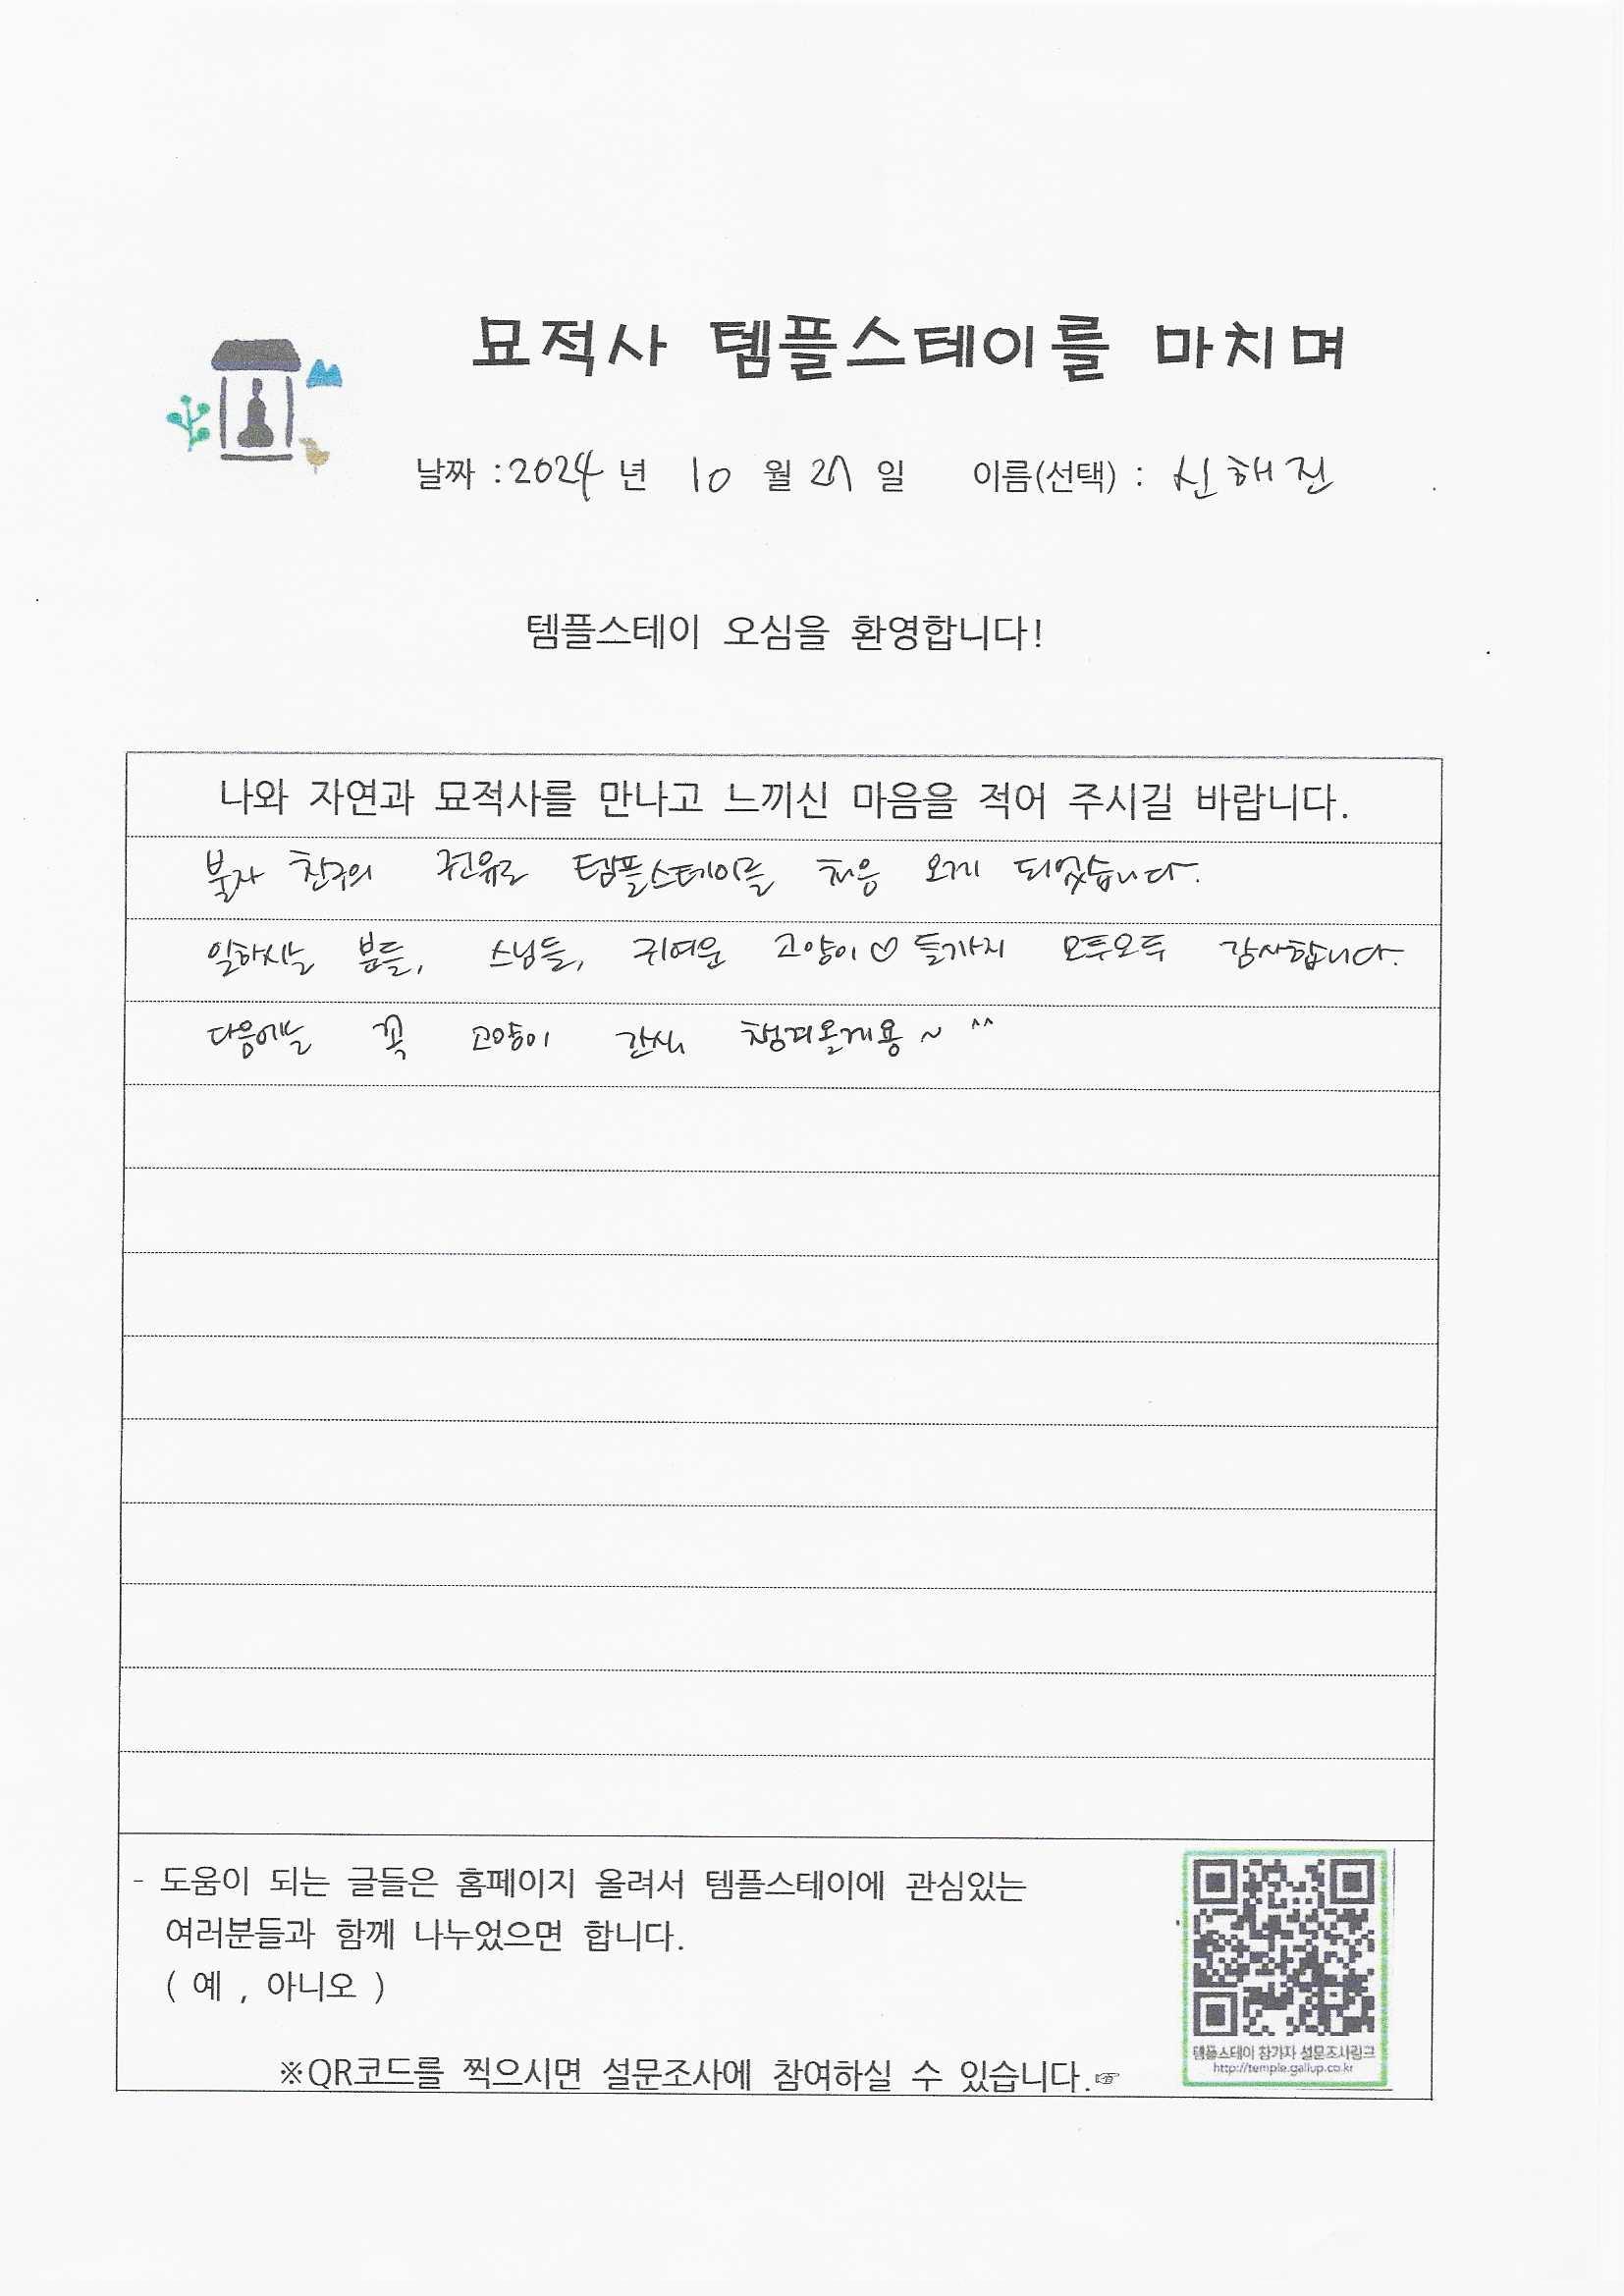 묘적사 템플스테이를 마치며
날짜 : 2024 년 10 월 27 일 이름(선택) : 신해진
템플스테이 오심을 환영합니다!
나와 자연과 묘적사를 만나고 느끼신 마음을 적어 주시길 바랍니다.
불자 친구의 권유로 템플스테이를 처음 오게 되었습니다.
일하시는 분들, 스님들, 귀여운 고양이♡들까지 모두모두 감사합니다.
다음에는 꼭 고양이 간식 챙겨올게용~ ^^
- 도움이 되는 글들은 홈페이지 올려서 템플스테이에 관심있는
여러분들과 함께 나누었으면 합니다.
( 예 , 아니오 )
※QR코드를 찍으시면 설문조사에 참여하실 수 있습니다.☞
템플스테이 참가자 설문조사링크
http://temple.gallup.co.kr